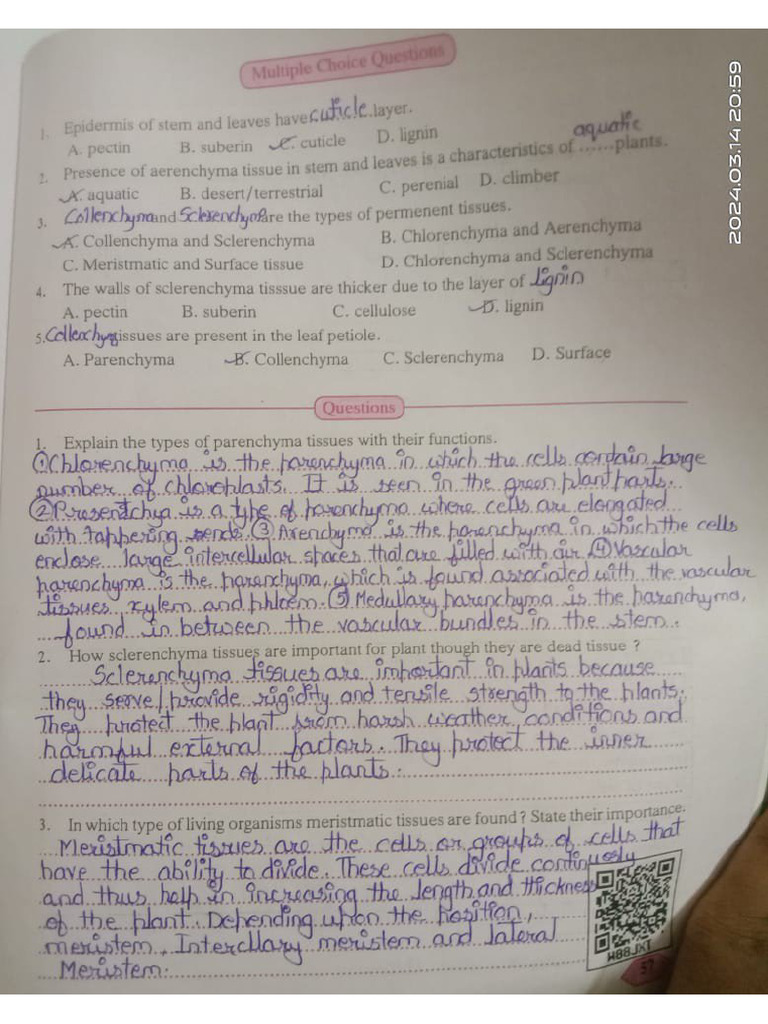 Multiple Choice Questions
2024.03.14 20:59
1. Epidermis of stem and leaves have cuticle layer.
A. pectin B. suberin C. cuticle D. lignin
aquatic
2. Presence of aerenchyma tissue in stem and leaves is a characteristics of ......plants.
A. aquatic B. desert/terrestrial C. perenial D. climber
3. Collenchyma and Sclerenchyma are the types of permenent tissues.
A. Collenchyma and Sclerenchyma B. Chlorenchyma and Aerenchyma
C. Meristmatic and Surface tissue D. Chlorenchyma and Sclerenchyma
4. The walls of sclerenchyma tisssue are thicker due to the layer of lignin
A. pectin B. suberin C. cellulose D. lignin
5. tissues are present in the leaf petiole.
A. Parenchyma B. Collenchyma C. Sclerenchyma D. Surface
Questions
1. Explain the types of parenchyma tissues with their functions.
① Chlorenchyma is the parenchyma in which the cells contain large
number of chloroplasts. It is seen in the green plant parts.
② is a type of parenchyma where cells are elongated
with tappering ③ Arenchyma is the parenchyma in which the cells
enclose large intercellular spaces that are filled with air ④ Vascular
parenchyma is the parenchyma, which is found associated with the vascular
tissues, xylem and phloem. ⑤ Medullary parenchyma is the parenchyma,
found in between the vascular bundles in the stem.
2. How sclerenchyma tissues are important for plant though they are dead tissue ?
Sclerenchyma tissues are important in plants because
they serve/provide rigidity and tensile strength to the plants.
They protect the plant from harsh weather conditions and
harmful external factors. They protect the inner
delicate parts of the plants.
3. In which type of living organisms meristmatic tissues are found? State their importance.
Meristmatic tissues are the cells or groups of cells that
have the ability to divide. These cells divide continously
and thus help in increasing the length and thickness
of the plant. Depending upon the position,
meristem, Intercllary meristem and lateral
Meristem.
W88JXT
57